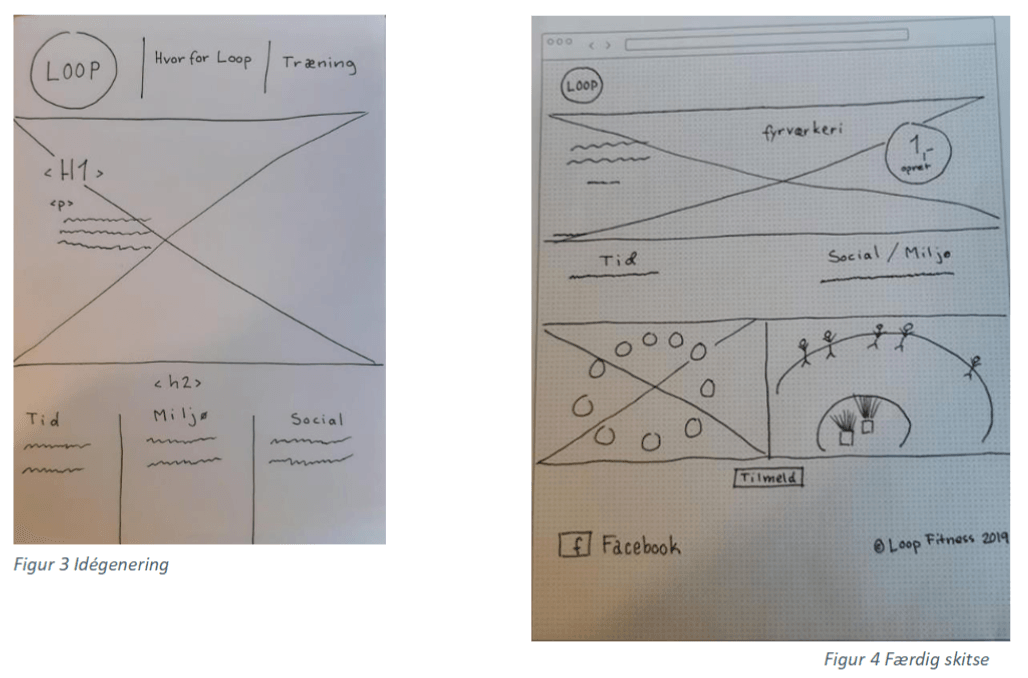 LOOP
Hvor for Loop
Træning
<H1>
<p>
<h2>
Tid
Miljø
Social
Figur 3 Idégenering
LOOP
fyrværkeri
1,-
opret
Tid
Social / Miljø
Tilmeld
f Facebook
© Loop Fitness 2019
Figur 4 Færdig skitse